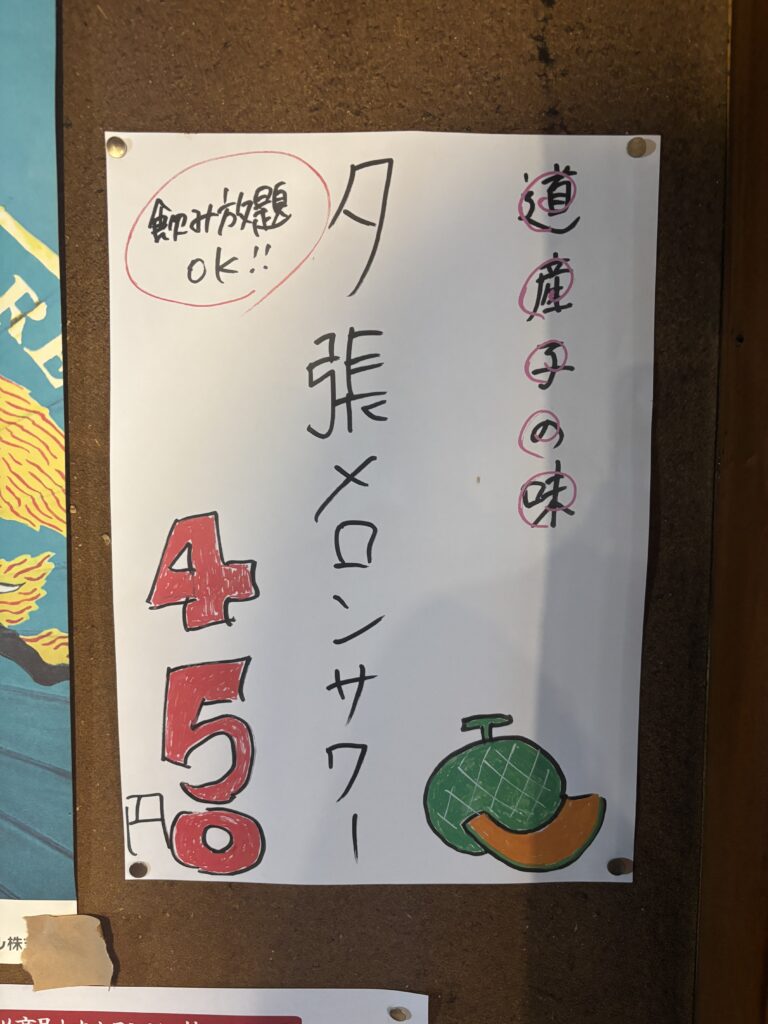 道産子の味
夕張メロンサワー
飲み放題
OK!!
450
円
RE